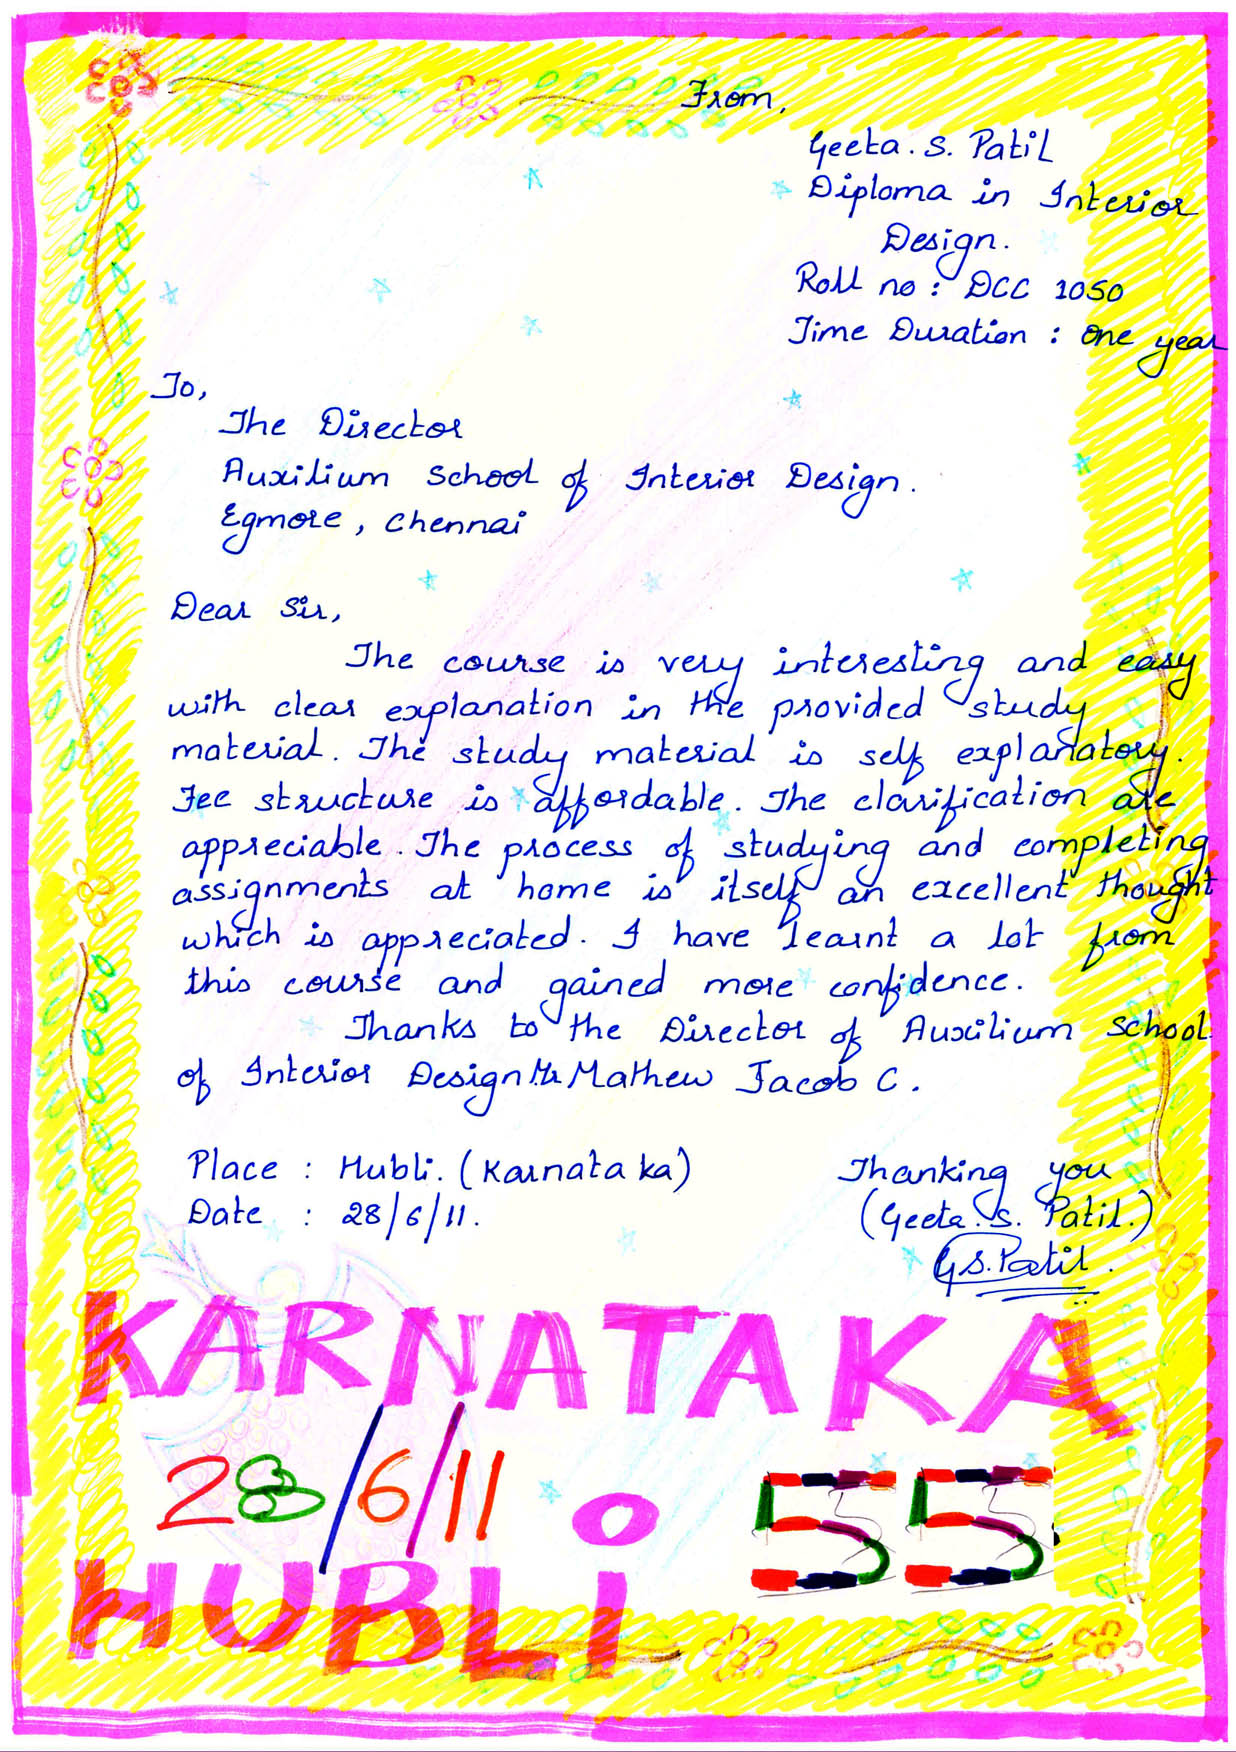 From,
Geeta. S. Patil
Diploma in Interior
Design.
Roll no : DCC 1050
Time Duration : One year
To,
The Director
Auxilium School of Interior Design.
Egmore, Chennai
Dear Sir,
The course is very interesting and easy
with clear explanation in the provided study
material. The study material is self explanatory.
Fee structure is affordable. The clarification are
appreciable. The process of studying and completing
assignments at home is itself an excellent thought
which is appreciated. I have learnt a lot from
this course and gained more confidence.
Thanks to the Director of Auxilium School
of Interior Design Mr Mathew Jacob C.
Place : Hubli. (Karnataka)
Thanking you
Date : 28/6/11.
(Geeta. S. Patil.)
G S. Patil.
KARNATAKA
28/6/11
55
HUBLi